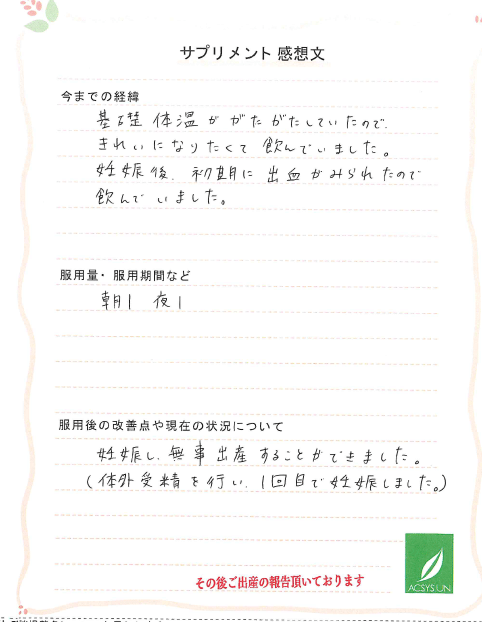 サプリメント 感想文
今までの経緯
基礎体温ががたがたしていたので、
きれいになりたくて飲んでいました。
妊娠後、初期に出血がみられたので
飲んでいました。
服用量・服用期間など
朝1 夜1
服用後の改善点や現在の状況について
妊娠し、無事出産することができました。
(体外受精を行い、1回目で妊娠しました。)
その後ご出産の報告頂いております
ACSYS UN